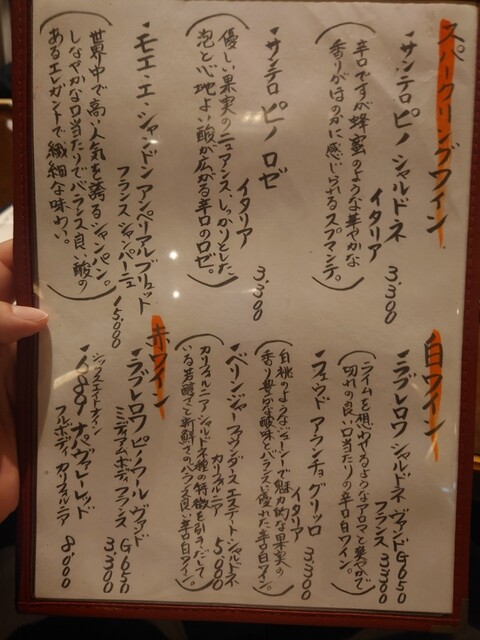 スパークリングワイン
・サンテロ ピノ シャルドネ
イタリア 3.300
(辛口ですが蜂蜜のような華やかな
香りがほのかに感じられるスプマンテ。)
・サンテロ ピノ ロゼ
イタリア 3.300
(優しい果実のニュアンス、しっかりとした
泡と心地よい酸が広がる辛口のロゼ。)
・モエ・エ・シャンドン アンペリアルブリュット
フランス シャンパーニュ 15.000
(世界中で高い人気を誇るシャンパン。
しなやかな口当たりでバランス良い酸の
あるエレガントで繊細な味わい。)
白ワイン
・ラブレロワ シャルドネ ヴァンド G650
フランス 3.300
(ライムを想わせるようなアロマと爽やかで
切れの良い口当たりの辛口白ワイン。)
・フェウド アランチョ グリッロ
イタリア 3.300
(白桃のようなジューシーで魅力的な果実の
香り豊かな酸味、バランスに優れた辛口白ワイン。)
・ベリンジャー ファウンダース エステート シャルドネ
カリフォルニア 5.000
(カリフォルニアシャルドネ種の特徴を引きだして
いる芳醇で新鮮でのバランス良い辛口白ワイン。)
赤ワイン
・ラブレロワ ピノノワール ヴァンド G650
ミディアムボディ フランス 3.300
シックスエイトナイン
・689 ナパヴァレーレッド
フルボディ カリフォルニア 8.000